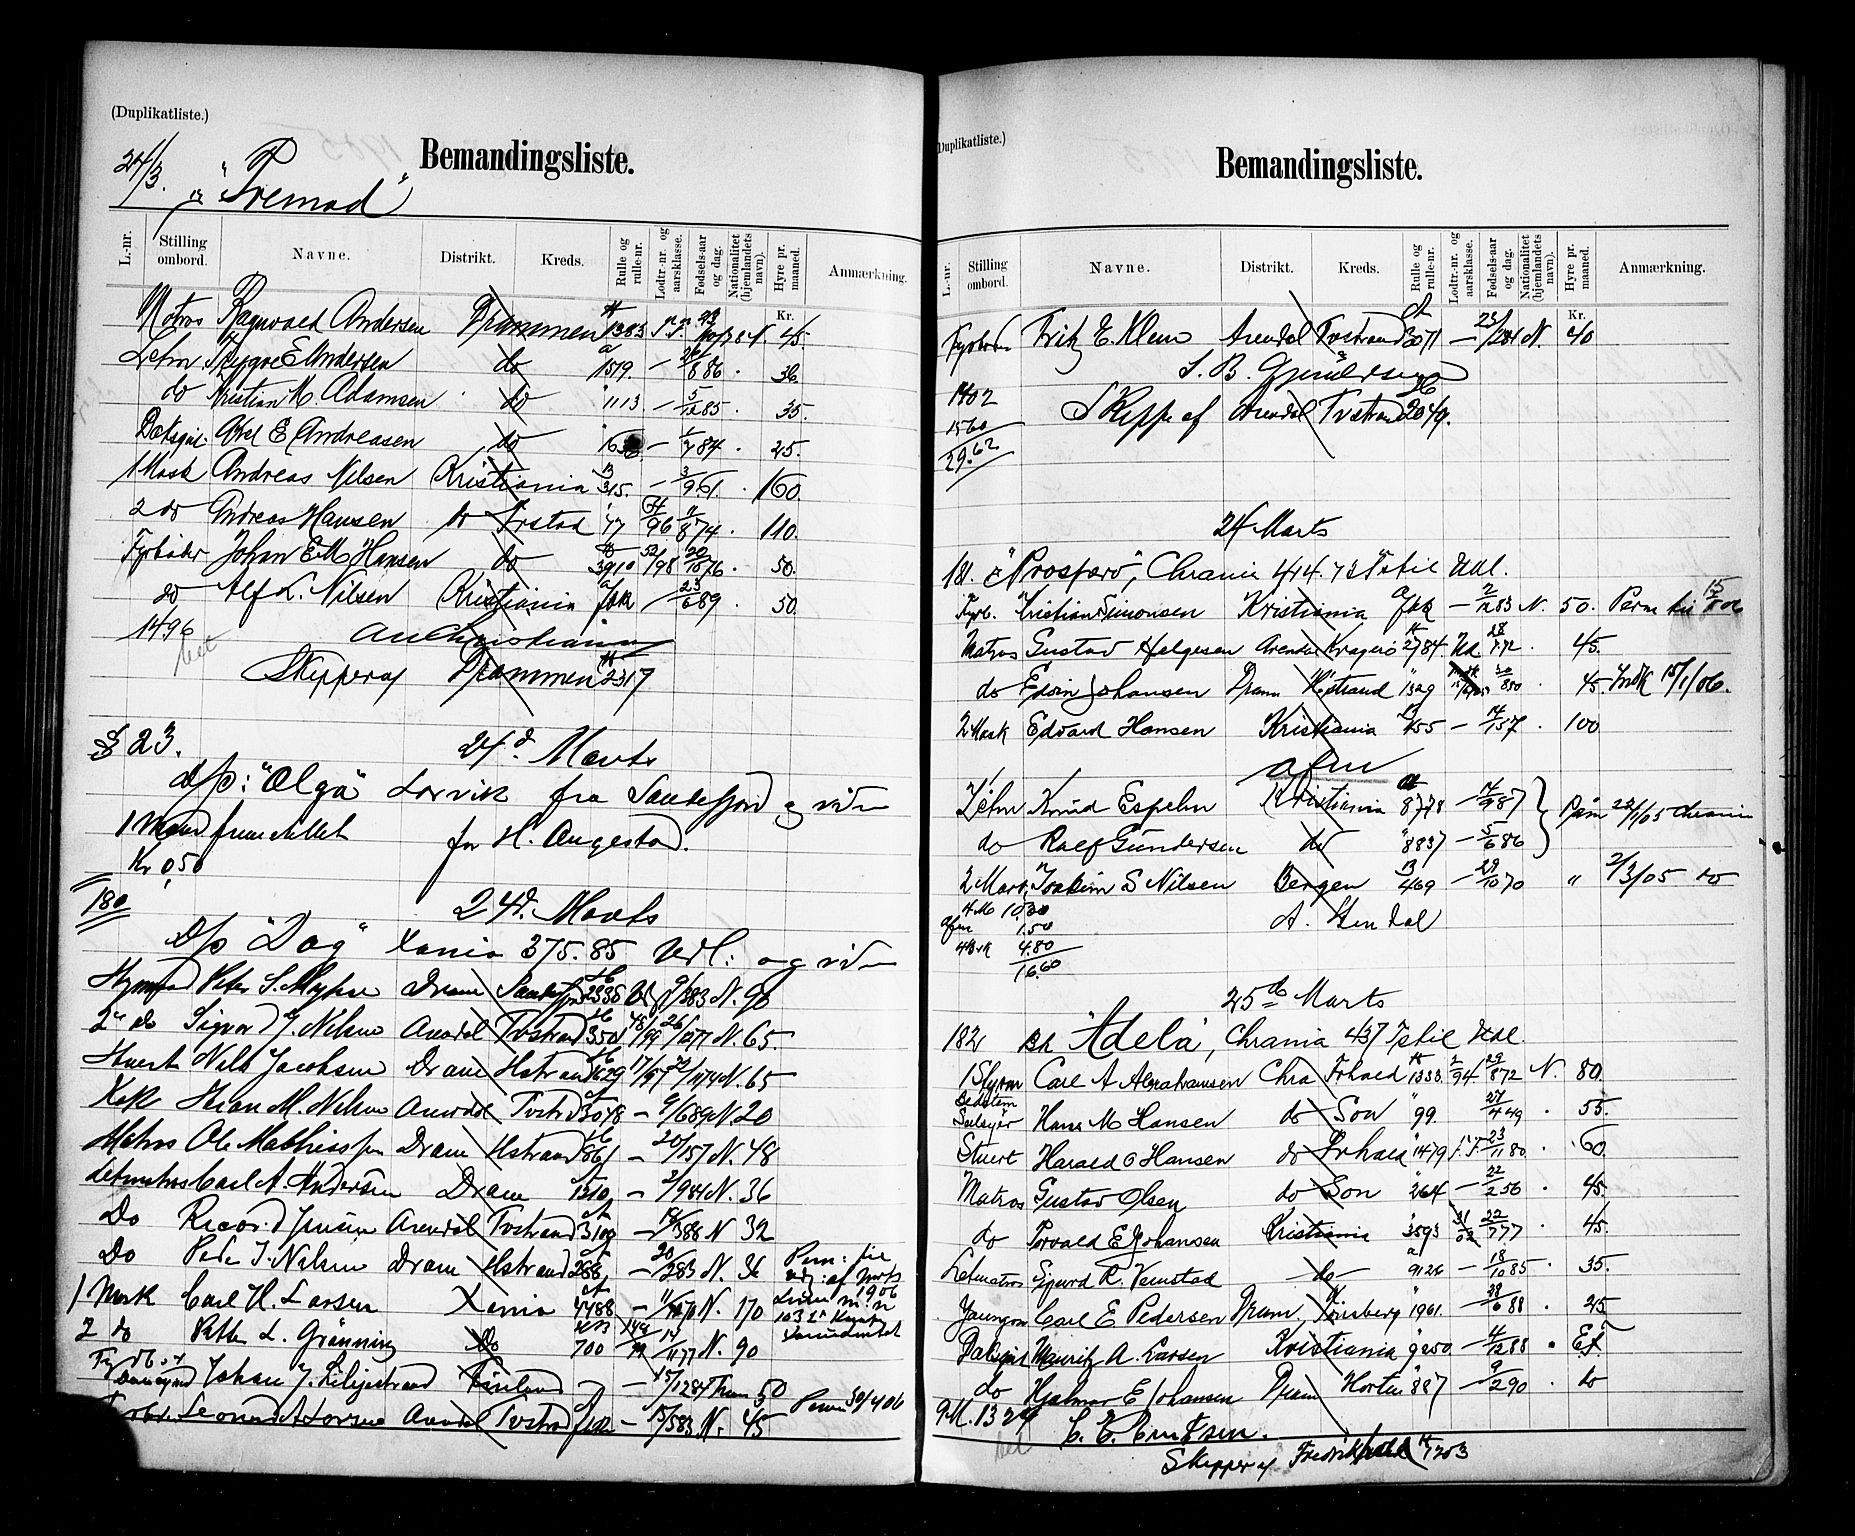 (Duplikatliste.)
Bemandingsliste.
24/3. "Fremad"
L.-nr. Stilling ombord. Navne. Distrikt. Kreds. Rulle og rulle-nr. Lodtr.-nr. og aarsklasse. Fødsels-aar og dag. Nationalitet (hjemlandets navn). Hyre pr. maaned. Anmærkning.
Kr.
Matros Ragnvald Andersen Drammen 1383 N. 45.
Letm Trygve E Andersen do 1519. — 886. 36.
do Kristian M. Adamsen do 1113 — 5/1285. 35.
Dæksgut. Axel E Andreasen do — 1/784. 25.
1 Mask Andreas Nilsen Kristiania 315. — 3/961. 160.
2 do Andreas Hansen do 77 96 874. 110.
Fyrbøder Johan E M Hansen do 3910 52/98 20/1076. 50.
do Alf L. Nilsen Kristiania fbk — 23/689. 50.
1496
Skipper af Drammen 2317
§ 23. 24d Marts
D/p: "Olga" Larvik fra Sandefjord og videre
1 Mand fremstillet for H. Augestad.
Kr 0,50
180 24d. Marts
D/p "Dag" Xania 375.85 Udl: og videre
Styrmand Peter S. Myhre Dram Sandefjord 2336 9/383 N. 90
2den do Sigvard J. Nilsen Arendal Tvstrand 3501 48/99 26/1277 N. 65.
Stuert Nils Jacobsen Dram Hstrand 1629 17/97 22/1174 N. 65
Kok M. Nilsen Arendal Tvstrd 3078 — 9/689 N. 20
Matros Ole Mathiassen Dram Hstrand 861 — 20/157 N. 48
Letmatros Carl A. Andersen Dram 1310 — 2/984 N. 36
Do Jensen Arendal Tvstrand 3109 — 388 N 32
Do Peder J. Nilsen Dram Hstrand 286 — 20/283 N. 36 Perm: til
1 Mask Carl H. Larsen Xania 4488 — N. 170
2 do Petter L. Grønning Do 700 149/99 14/1177 N. 90
Johan J. Liljestrand Finland — 15/1284 50 Perm 30/4 06
Fyrbd. Leonard A Larsen Arendal Tvstrd fbk — 15/583 N. 45

(Duplikatliste.)
Bemandingsliste.
L.-nr. Stilling ombord. Navne. Distrikt. Kreds. Rulle og rulle-nr. Lodtr.-nr. og aarsklasse. Fødsels-aar og dag. Nationalitet (hjemlandets navn). Hyre pr. maaned. Anmærkning.
Kr.
Fyrbøder Fritz E. Klem Arendal Tvstrand 3071 — 23/1284 N. 40
S. B. Gjendersen
1402 Skipp. af Arendal Tvstrand 2049.
1560
29.62
24 Marts
181. "Prospero", Chrania 414.73 Tstil Udl.
Fyrb. Kristian Simonsen Kristiania fbk — 2/1283 N. 50. Perm til 15/5 06
Matros Gustav Helgesen Arendal Kragerø 2784 Ud 28/772. 45.
do Edvin Johansen Dram Hstrand 1329 30/880. 45. Indk 15/1/06.
2 Mask Edvard Hansen Kristiania 455 — 14/157. 100
afm
Letm Knud Espelin Kristiania 8778 — 14/987 Perm 22/1/05 Chrania
do Ralf Gundersen do 8837 — 5/686
2 Mask Joakim S Nilsen Bergen 469 — 29/1070 " 2/3/05 do
4 M 10.30 A. Stendal
afm 1.50
4.80
16.60
25de Marts
182 Bk "Adela", Chrania 437 Tstil Udl.
1 Styrm Carl A Abrahamsen Chra Frhald 1333 2/94 29/872 N. 80.
Bedstem Seilmager Hans M Hansen do Son 99 27/449. 55.
Stuert Harald O Hansen do Frhald 1479 23/1180. 60.
Matros Gustav Olsen do Son 264 — 22/256. 45.
do Torvald E Johansen Kristiania 3593 31/02 22/777. 45.
Letmatros Sigurd R. Vemstad do 9126 — 18/1085. 35.
Jungm Carl E Pedersen Dram. Tønsberg 1901. — 28/688. 25
Dæksgut Mauritz A. Larsen Kristiania 9250 — 4/1288. Ex
do Hjalmar E Johansen Dram Horten 887 — 9/290. do
9 M. 1329 C. E. Eriksen.
Skipper af Fredrikshald 1203